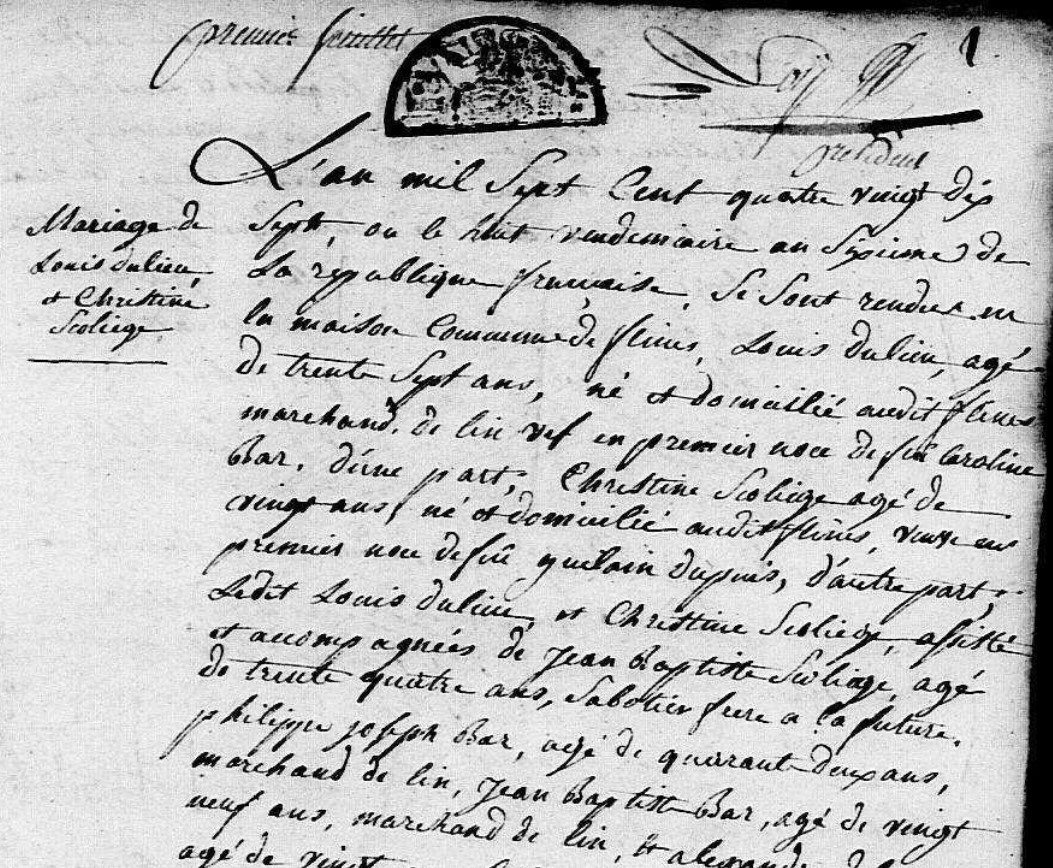 premier feuillet
1
président
L'an mil Sept Cent quatre vingt dix
Sept, ou le huit vendemiaire an Sixieme de
La republique française, Se Sont rendus en
la maison Commune de flines, Louis dulieu, agé
de trente Sept ans, né et domicilié audit flines
marchand de lin vef en premier noce de fût Caroline
Bar, d'une part, Christine Scoliege agé de
vingt ans, né et domicilié audit flines, veuve en
premier noce de fût guilain dupuis, d'autre part,
Ledit Louis dulieu, et Christine Scoliege, assisté
et acompagnées de Jean Baptiste Scoliege, agé
de trente quatre ans, Sabotier frere a la future,
philippe joseph Bar, agé de quarante deux ans,
marchand de lin, Jean Baptiste Bar, agé de vingt
neuf ans, marchand de lin, et
agé de vingt
Mariage de
Louis dulieu,
et Christine
Scoliege